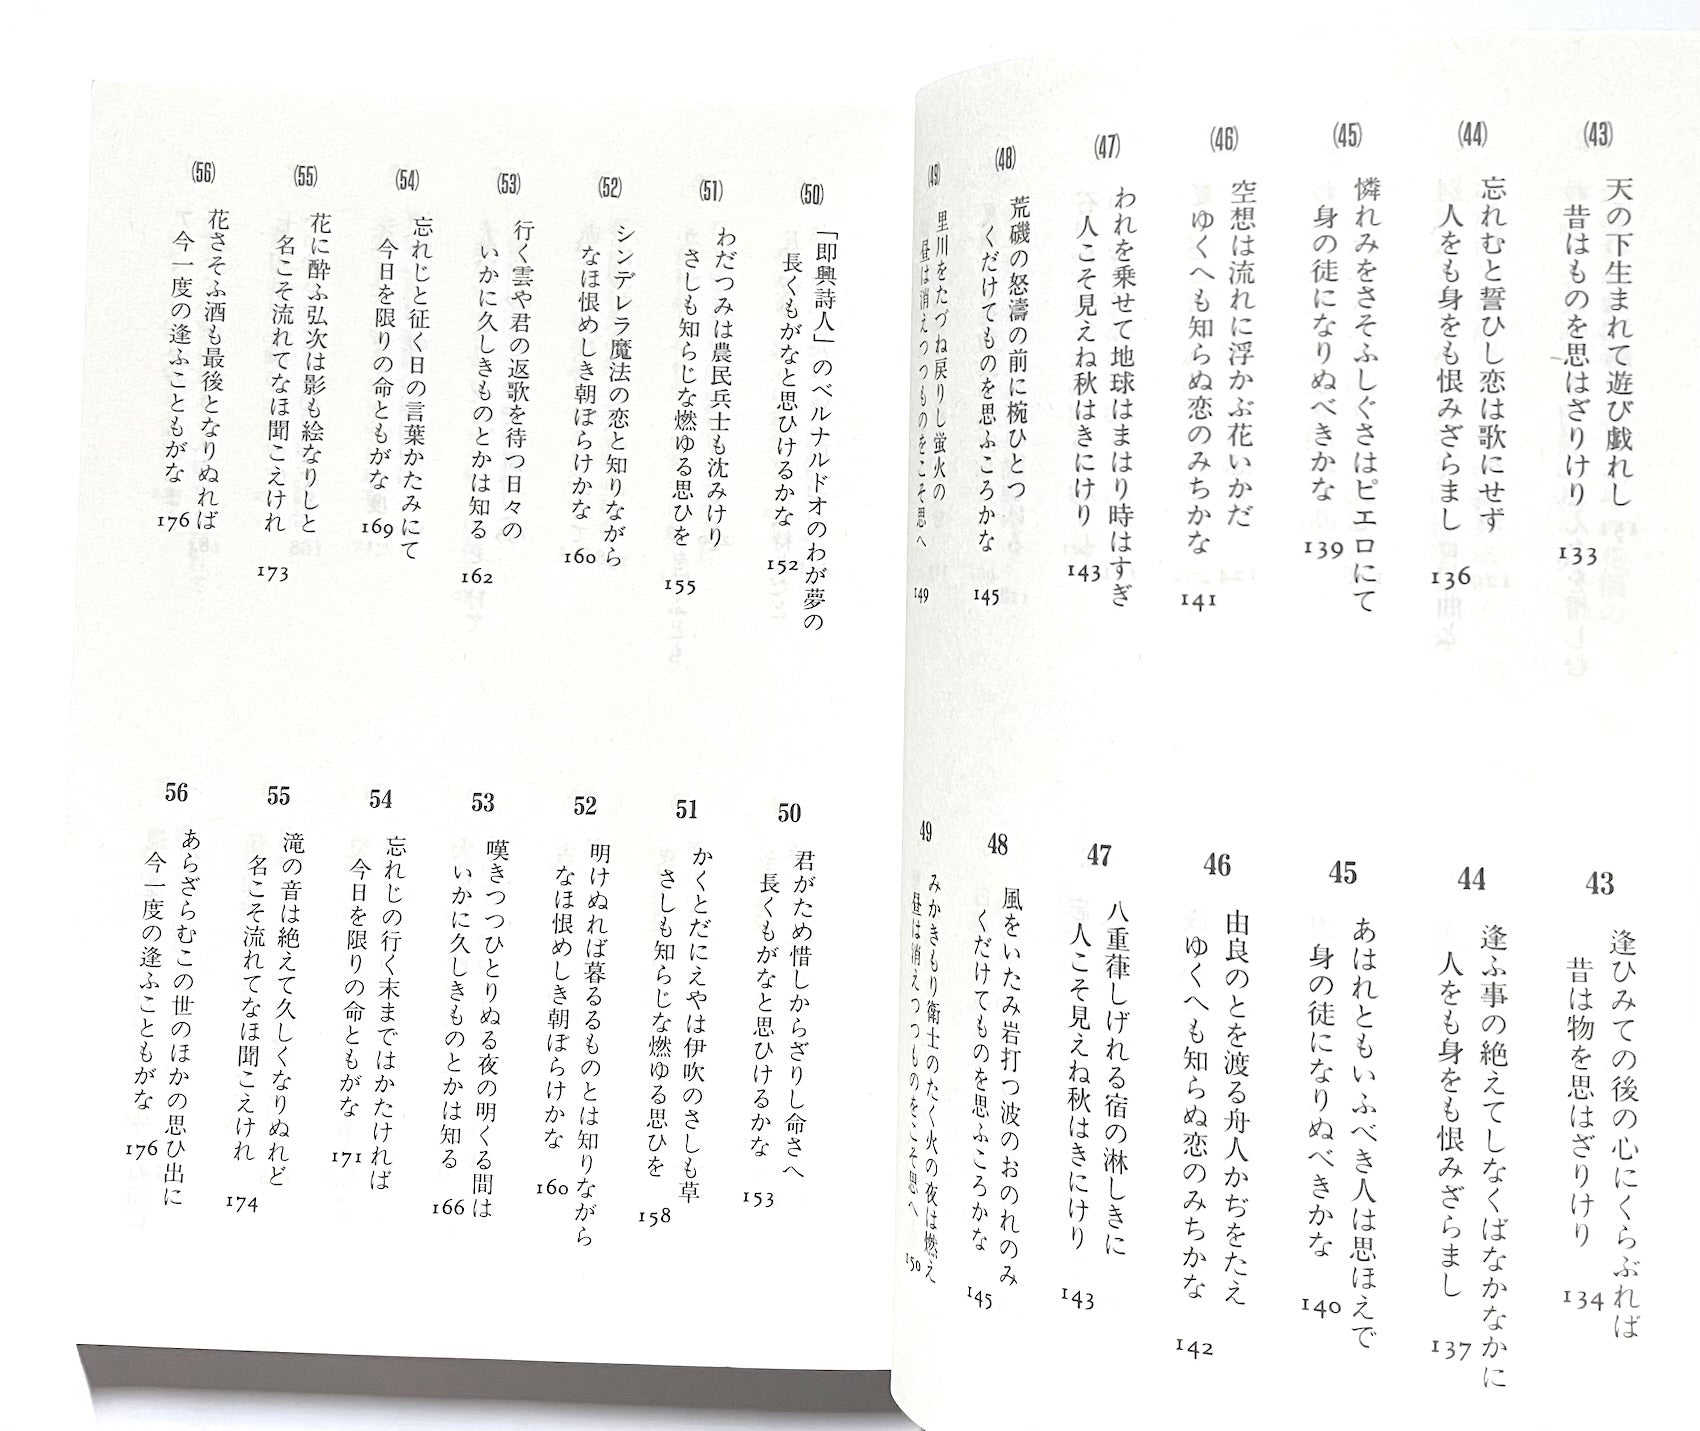 (43)
天の下生まれて遊び戯れし
昔はものを思はざりけり
133
(44)
忘れむと誓ひし恋は歌にせず
人をも身をも恨みざらまし
136
(45)
憐れみをさそふしぐさはピエロにて
身の徒になりぬべきかな
139
(46)
空想は流れに浮かぶ花いかだ
ゆくへも知らぬ恋のみちかな
141
(47)
われを乗せて地球はまはり時はすぎ
人こそ見えね秋はきにけり
143
(48)
荒磯の怒濤の前に椀ひとつ
くだけてものを思ふころかな
145
(49)
里川をたづね戻りし蛍火の
昼は消えつつものをこそ思へ
149
43
逢ひみての後の心にくらぶれば
昔は物を思はざりけり
134
44
逢ふ事の絶えてしなくばなかなかに
人をも身をも恨みざらまし
137
45
あはれともいふべき人は思ほえで
身の徒になりぬべきかな
140
46
由良のとを渡る舟人かぢをたえ
ゆくへも知らぬ恋のみちかな
142
47
八重葎しげれる宿の淋しきに
人こそ見えね秋はきにけり
143
48
風をいたみ岩打つ波のおのれのみ
くだけてものを思ふころかな
145
49
みかきもり衛士のたく火の夜は燃え
昼は消えつつものをこそ思へ
150
(50)
「即興詩人」のベルナルドオのわが夢の
長くもがなと思ひけるかな
152
(51)
わだつみは農民兵士も沈みけり
さしも知らじな燃ゆる思ひを
155
(52)
シンデレラ魔法の恋と知りながら
なほ恨めしき朝ぼらけかな
160
(53)
行く雲や君の返歌を待つ日々の
いかに久しきものとかは知る
162
(54)
忘れじと征く日の言葉かたみにて
今日を限りの命ともがな
169
(55)
花に酔ふ弘次は影も絵なりしと
名こそ流れてなほ聞こえけれ
173
(56)
花さそふ酒も最後となりぬれば
今一度の逢ふこともがな
176
50
君がため惜しからざりし命さへ
長くもがなと思ひけるかな
153
51
かくとだにえやは伊吹のさしも草
さしも知らじな燃ゆる思ひを
158
52
明けぬれば暮るるものとは知りながら
なほ恨めしき朝ぼらけかな
160
53
嘆きつつひとりぬる夜の明くる間は
いかに久しきものとかは知る
166
54
忘れじの行く末まではかたければ
今日を限りの命ともがな
171
55
滝の音は絶えて久しくなりぬれど
名こそ流れてなほ聞こえけれ
174
56
あらざらむこの世のほかの思ひ出に
今一度の逢ふこともがな
176